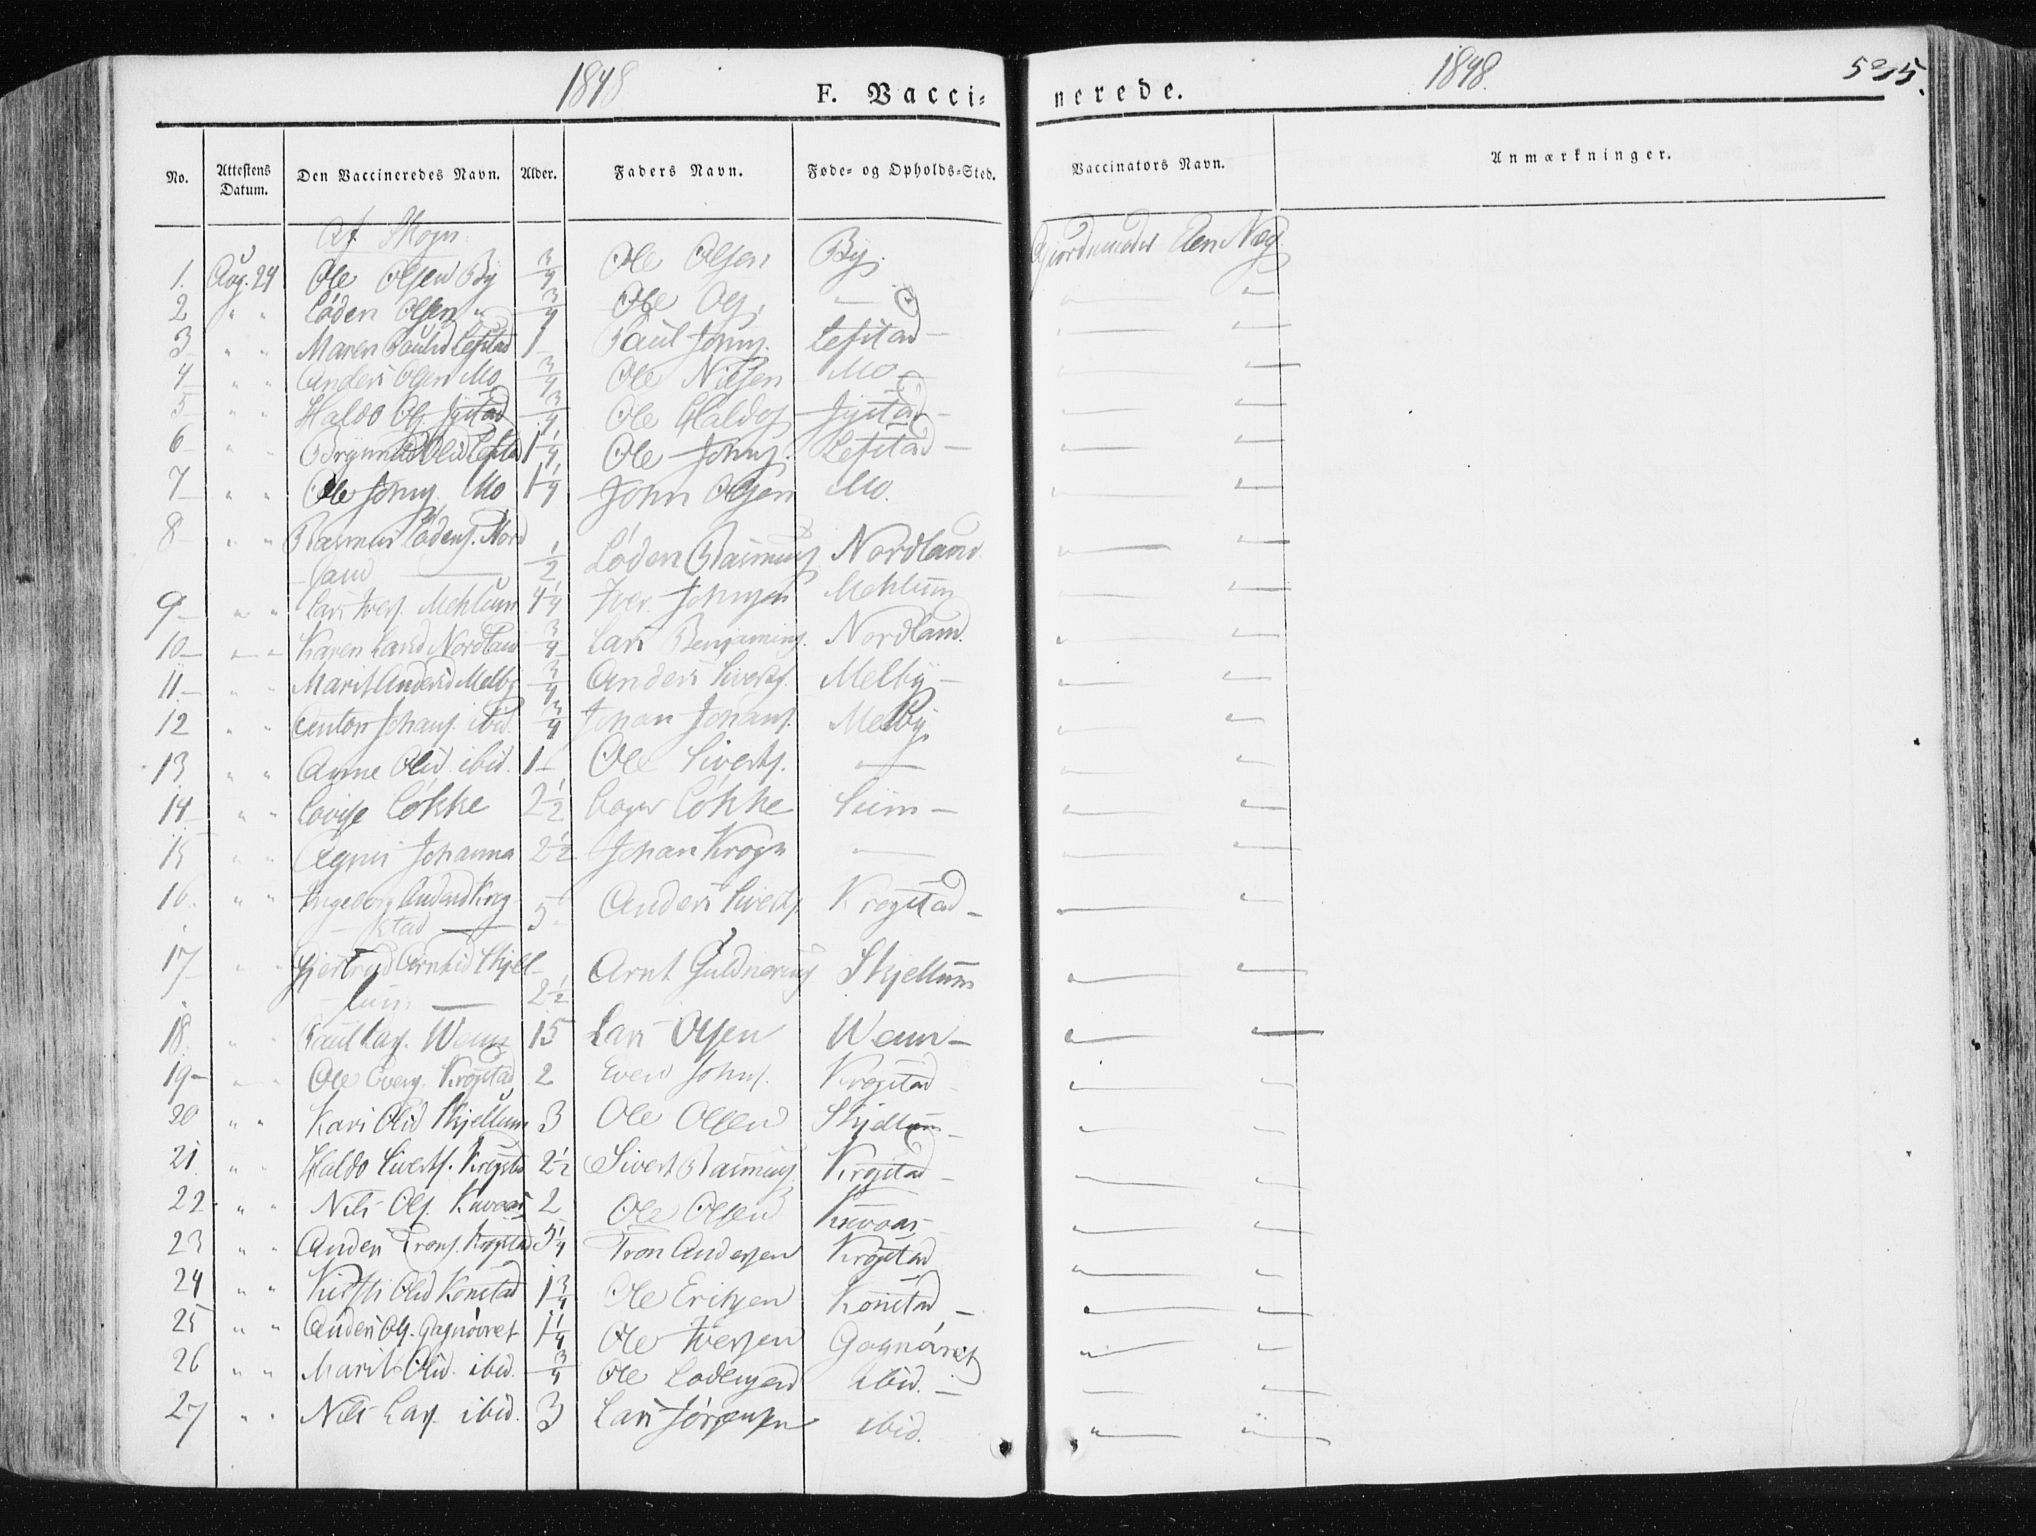 1848
F. Vacci=
nerede.
1848.
535.
No.
Attestens Datum.
Den Vaccineredes Navn.
Alder.
Faders Navn.
Føde= og Opholds=Sted.
Vaccinators Navn.
Anmærkninger.
Af Skogn
1. Aug. 24 Ole Olsen By 3/4 Ole Olsen By.
2 " " Loden Olsen " 3/4 Ole Ols. —
3 " " Maren Paulsd Lefstad 1 Paul Johns. Lefstad —
4 " " Anders Olsen Mo 3/4 Ole Nilsen Mo —
5 " " Haldo Ols. 3/4 Ole Haldos. —
6 " " Olsd Lefstad 1 1/4 Ole Johns. Lefstad —
7 " " Ole Johns. Mo 1 1/4 John Olsen Mo.
8 " " Rasmus Lodens. Nord
land — 1/2 Loden Rasmuss Nordland
9 " " Lars Ivers. Mehlum 4 1/4 Iver Johnsen Mehlum
10 " " Karen Larsd Nordland 3/4 Lars Benjamins. Nordland.
11 " " Marit Andersd Melby 3/4 Anders Siverts. Melby —
12 " " Anton Johans. ibid. 3/4 Johan Johans. Melby
13 " " Anne Olsd. ibid. 1 Ole Siverts. —
14 " " Lovise Løkke 2 1/2 Løkke —
15 " " Johanna 2 1/2 Johan Krogh —
16. " " Ingeborg Andersd Krog
stad — 5 Anders Siverts Krogstad —
17 " " Gjertrud Arntsd Skjel
lum — 2 1/2 Arnt Skjellum
18. " " Paul Lars. Wenn 15 Lars Olsen Wenn —
19 " " Ole Evens. Krogstad 2 Even Johns. Krogstad
20 " " Kari Olsd Skjellum 3 Ole Olsen Skjellum —
21 " " Haldo Siverts. Krogstad 2 1/2 Sivert Rasmuss Krogstad —
22 " " Nils Ols. 2 Ole Olsen
23 " " Anders Trons. Krogstad 5 1/4 Tron Andersen Krogstad
24 " " Kirsti Olsd 1 3/4 Ole Eriksen
25 " " Anders Ols. Gagnøvret 1 1/4 Ole Iversen Gagnøvret
26 " " Marit Olsd. ibid. 3/4 Ole Lodensen ibid. —
27 " " Nils Lars. ibid. 3 Lars Jørgensen ibid.